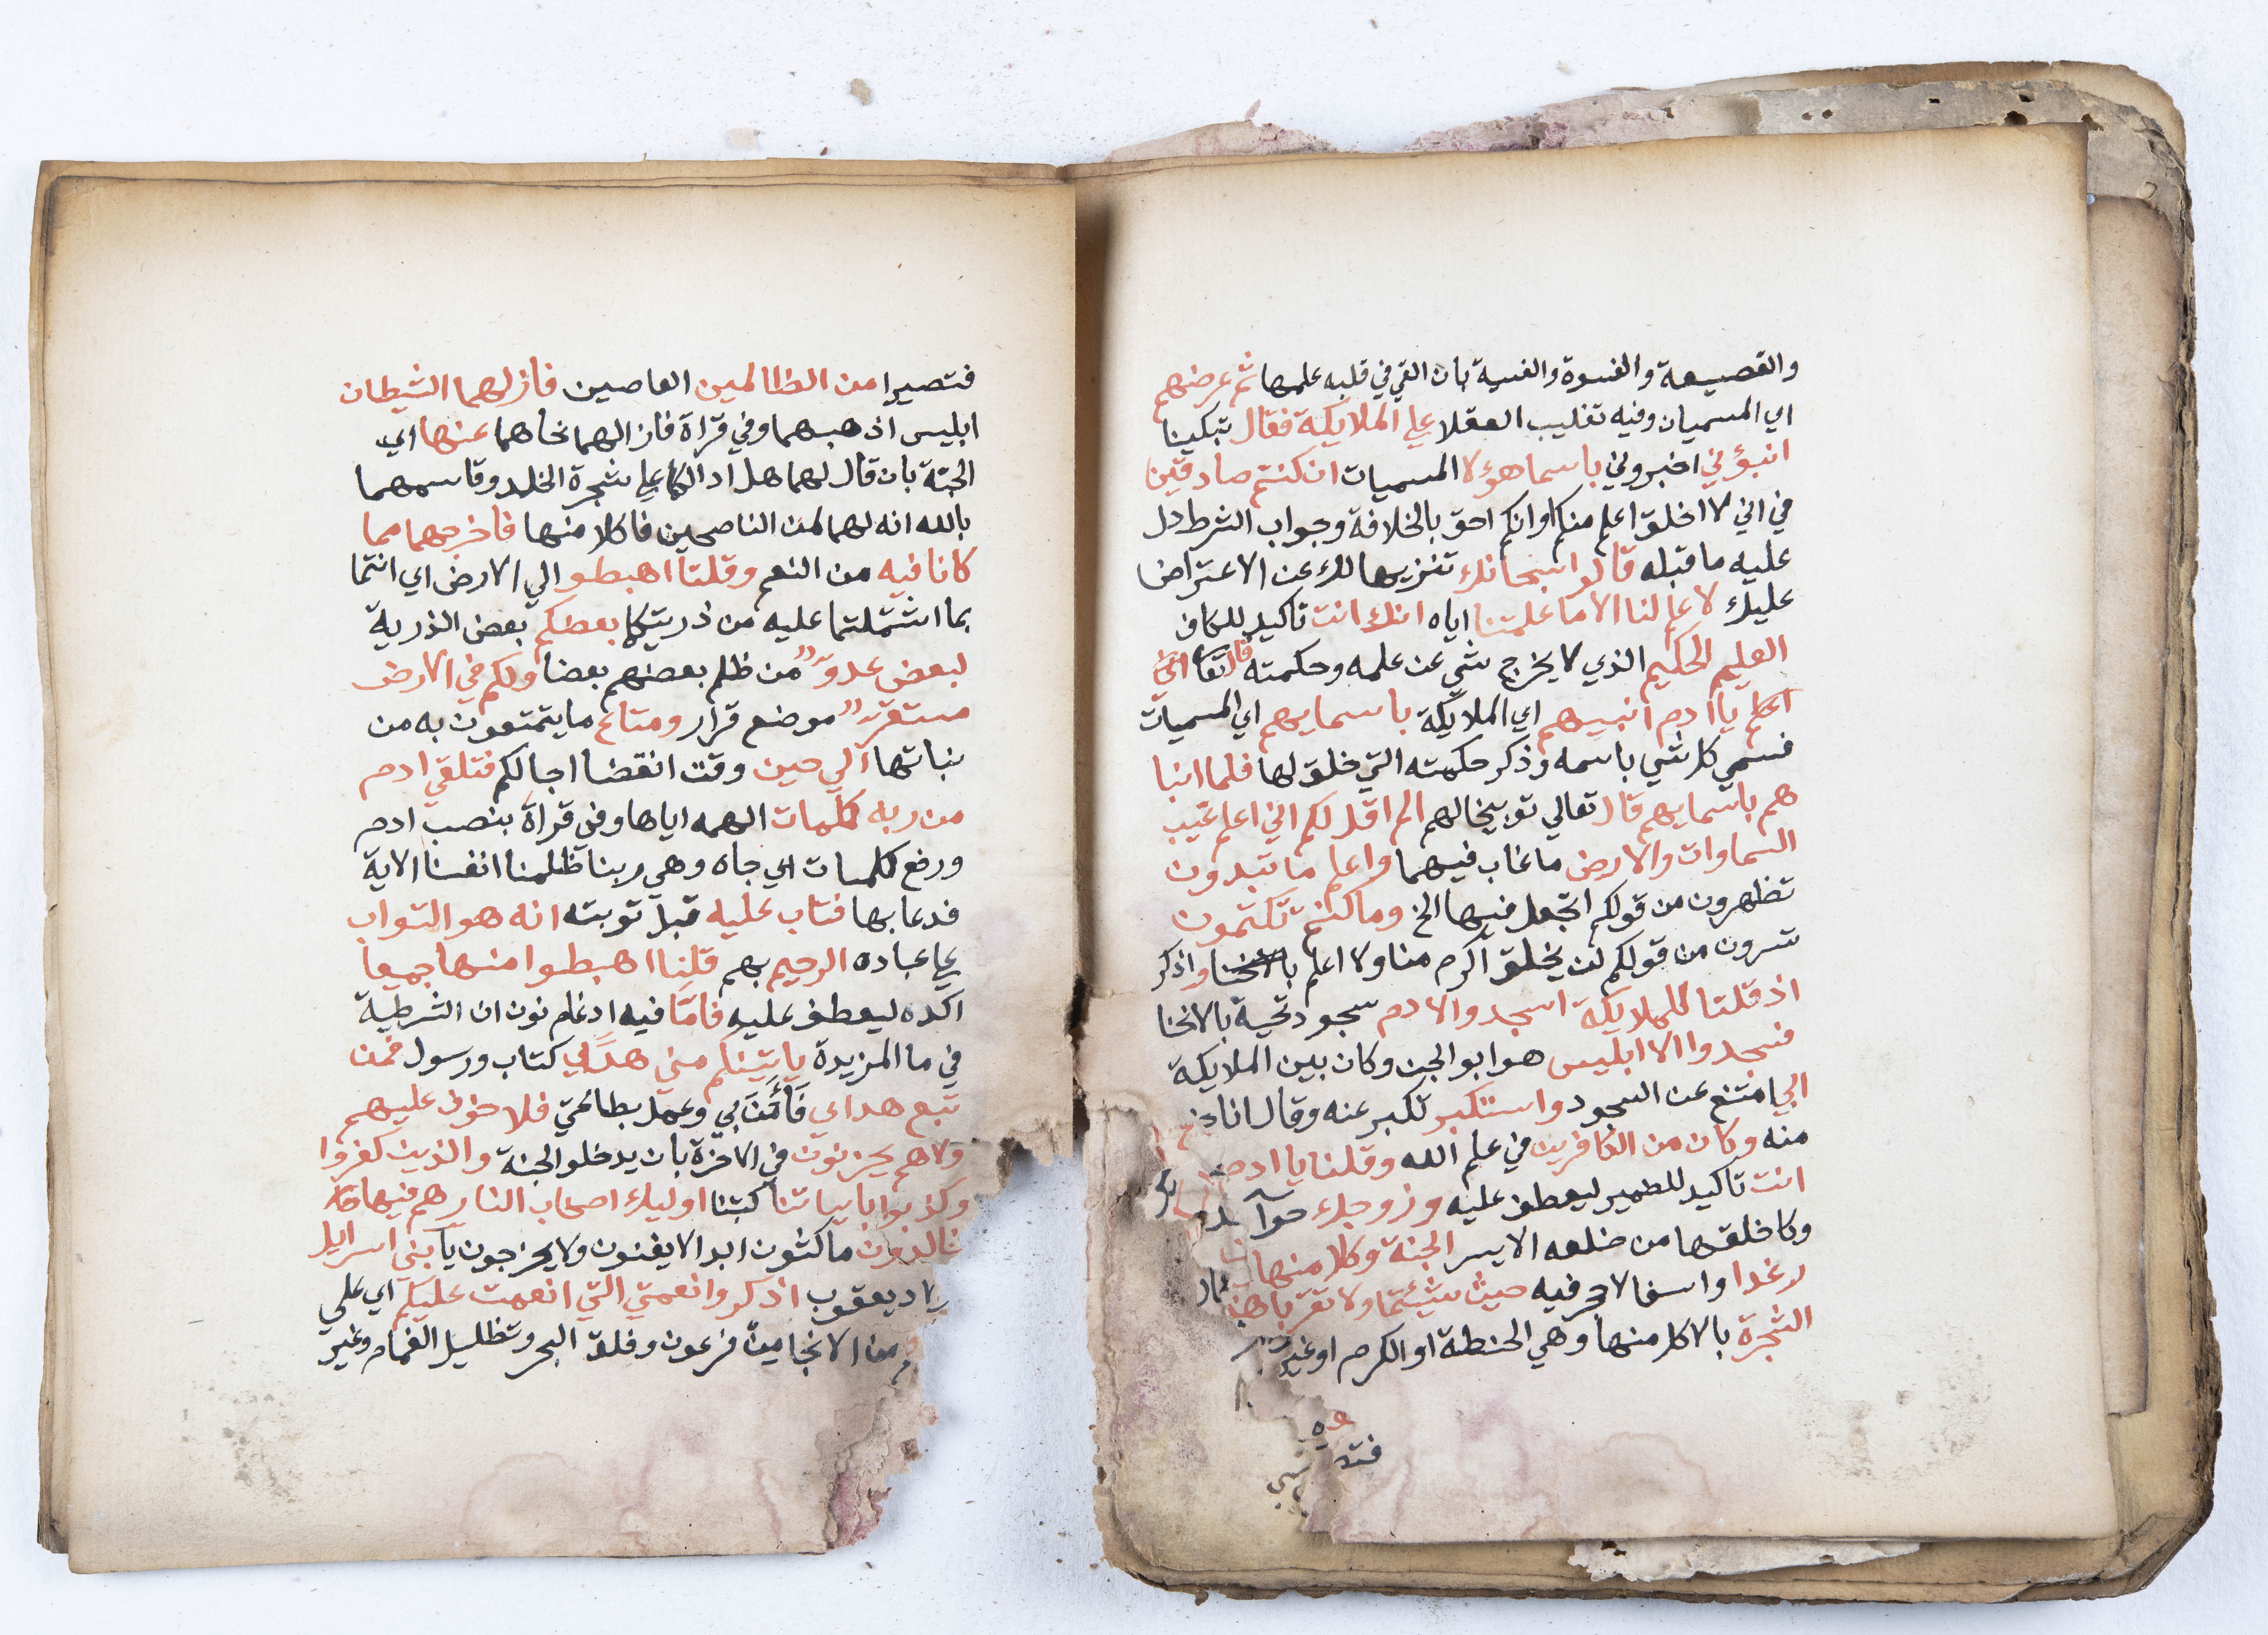 والقصيعة والفسوة والفسية بان القي في قلبه علمها ثم عرضهم
اي المسميات وفيه تغليب العقلا علي الملايكة فقال تبكيتا
انبؤني اخبروني باسما هؤلا المسميات ان كنتم صادقين
في اني لا اخلق اعلم منكم او انكم احق بالخلافة وجواب الشرط دل
عليه ما قبله قالوا سبحانك تنزيها لك عن الاعتراض
عليك لا علم لنا الا ما علمتنا اياه انك انت تاكيد للكاف
العليم الحكيم الذي لا يخرج شي عن علمه وحكمته قال تعا
يا ادم انبيهم اي الملايكة باسمايهم اي المسميات
فسمي كل شي باسمه وذكر حكمته التي خلق لها فلما انبا
هم باسمايهم قال تعالي توبيخا لهم الم اقل لكم اني اعلم غيب
السماوات والارض ما غاب فيهما واعلم ما تبدون
تظهرون من قولكم اتجعل فيها الخ وما كنتم تكتمون
تسرون من قولكم لن يخلق اكرم منا ولا اعلم واذكر
اذ قلنا للملايكة اسجدوا لادم سجود تحية بالانحنا
فسجدوا الا ابليس هو ابو الجن وكان بين الملايكة
ابي امتنع عن السجود واستكبر تكبر عنه وقال انا
منه وكان من الكافرين في علم الله وقلنا يا ادم
انت تاكيد للضمير ليعطف عليه وزوجك حوآ
وكا خلقها من ضلعه الايسر الجنة وكلا منها
رغدا واسعا لا حجر فيه حيث شيئتما ولا تقربا هذ
الشجرة بالاكل منها وهي الحنطة او الكرم او غير
فتصيرا من الظالمين العاصين فازلهما الشيطان
ابليس اذهبهما وفي قراة فازالهما نحاهما عنها اي
الجنة بان قال لهما هل ادلكما علي شجرة الخلد وقاسمهما
بالله انه لهما لمن الناصحين فاكلا منها فاخرجهما مما
كانا فيه من النعم وقلنا اهبطو الي الارض اي انتما
بما اشتملتما عليه من ذريتكما بعضكم بعض الذرية
لبعض عدوّ من ظلم بعضهم بعضا ولكم في الارض
مستقر موضع قرار ومتاع ما يتمتعون به من
نباتها الي حين وقت انقضا اجالكم فتلقي ادم
من ربه كلمات الهمه اياها وفي قراة بنصب ادم
ورفع كلمات اي جاه وهي ربنا ظلمنا انفسنا الاية
فدعا بها فتاب عليه قبل توبته انه هو التواب
علي عباده الرحيم بهم قلنا اهبطوا منها جميعا
اكده ليعطف عليه فامّا فيه ادغام نون ان الشرطية
في ما المزيدة ياتينكم مني هدًي كتاب ورسول فمن
تبع هداي فآمن بي وعمل بطاعتي فلا خوف عليهم
ولا هم يحزنون في الاخرة بان يدخلو الجنة والذين كفروا
وكذبوا باياتنا كتبنا اوليك اصحاب النار هم فيها
خالدون ماكثون ابدا لا يفنون ولا يخرجون يا بني اسرايل
اولاد يعقوب اذكروا نعمتي التي انعمت عليكم اي علي
من الانجا من فرعون وفلق البحر وتظليل الغمام وغير